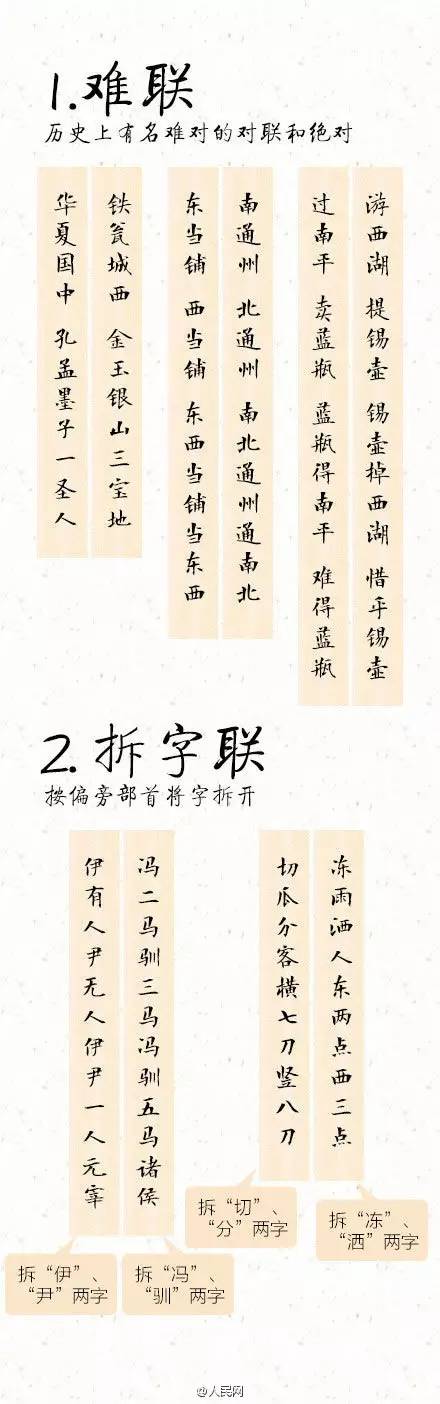 1.难联
历史上有名难对的对联和绝对
游西湖 提锡壶 锡壶掉西湖 惜乎锡壶
过南平 卖蓝瓶 蓝瓶得南平 难得蓝瓶
南通州 北通州 南北通州通南北
东当铺 西当铺 东西当铺当东西
铁瓮城西 金玉银山三宝地
华夏国中 孔孟墨子一圣人
2.拆字联
按偏旁部首将字拆开
冻雨洒人东两点西三点
切瓜分客横七刀竖八刀
冯二马驯三马冯驯五马诸侯
伊有人尹无人伊尹一人元宰
拆“冻”、
“洒”两字
拆“切”、
“分”两字
拆“冯”、
“驯”两字
拆“伊”、
“尹”两字
@人民网